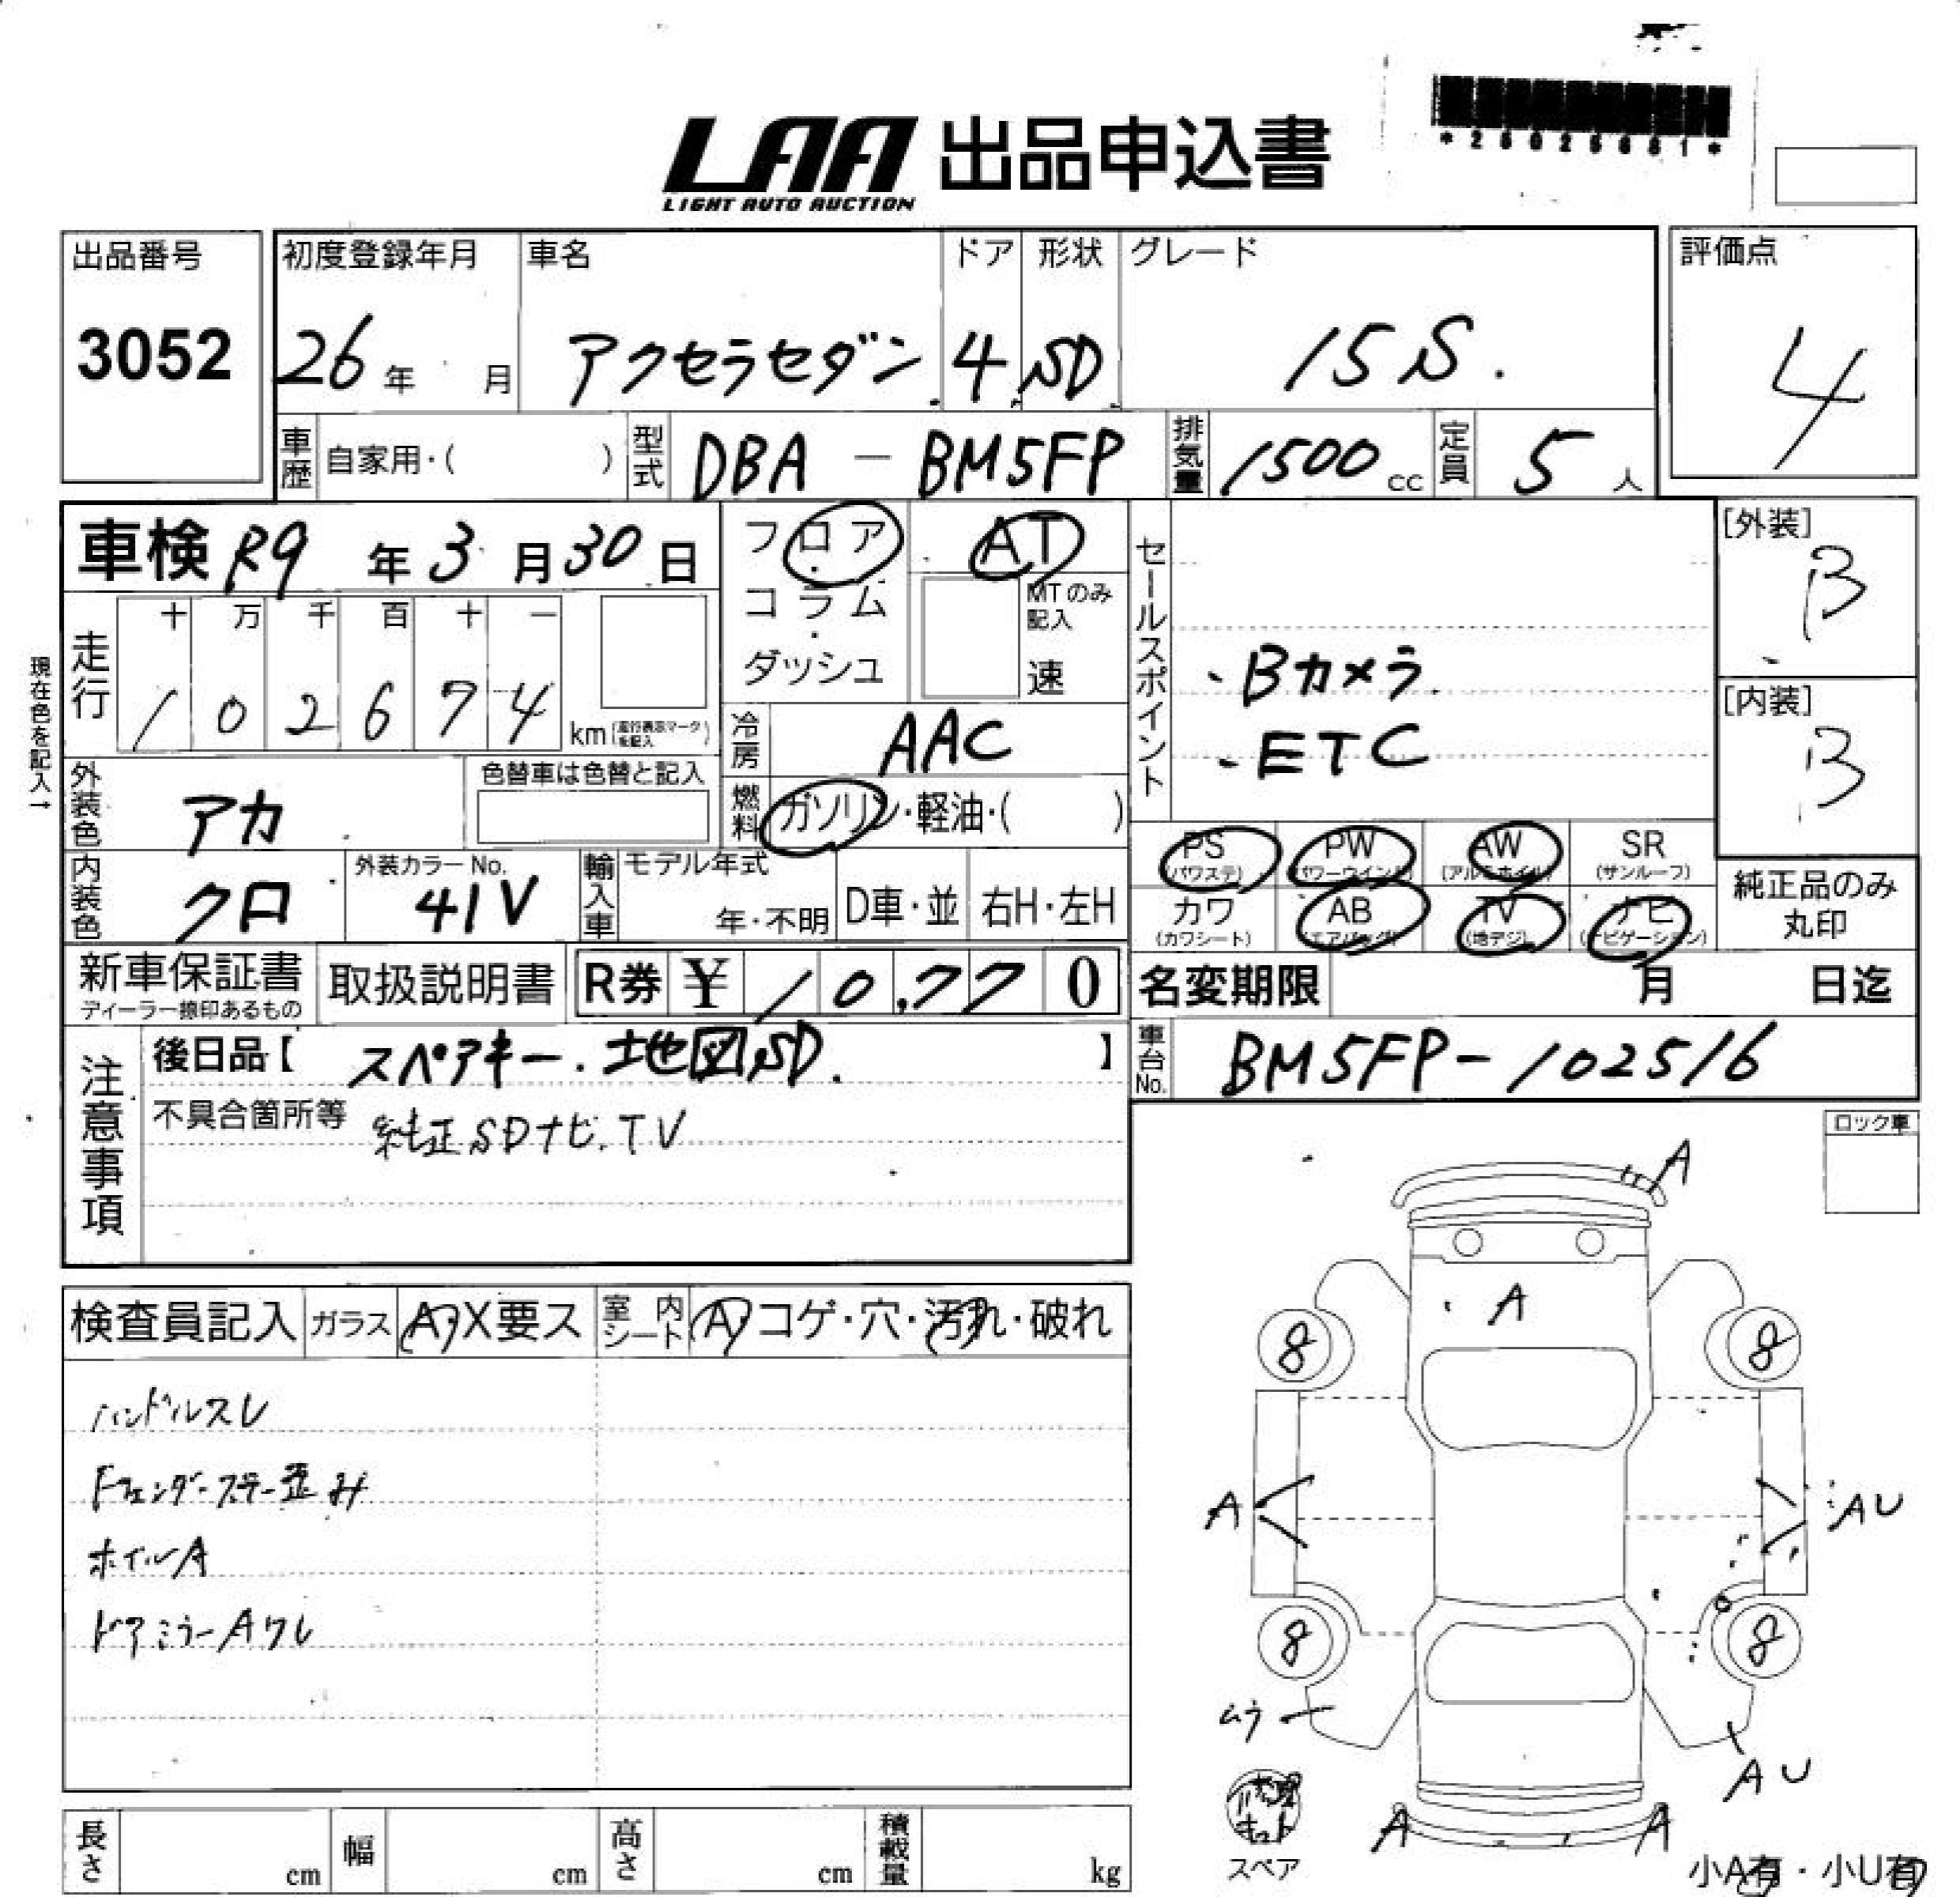 LAA 出品申込書
LIGHT AUTO AUCTION
出品番号
3052
初度登録年月
26年 月
車名
アクセラセダン
ドア
4
形状
SD
グレード
15S.
評価点
4
車歴 自家用・( )
型式 DBA-BM5FP
排気量 1500cc
定員 5人
車検 R9年3月30日
フロア・コラム・ダッシュ
AT
MTのみ記入
速
セールスポイント
・Bカメラ
・ETC
[外装]
B
[内装]
B
現在色を記入→
走行
十 万 千 百 十 一
1 0 2 6 7 4
km (走行表示マークを記入)
冷房 AAC
燃料 ガソリン・軽油・( )
外装色 アカ
色替車は色替と記入
内装色 クロ
外装カラーNo.
41V
輸入車 モデル年式
年・不明
D車・並
右H・左H
PS (パワステ)
PW (パワーウインド)
AW (アルミホイル)
SR (サンルーフ)
カワ (カワシート)
AB (エアバッグ)
TV (地デジ)
ナビ (ナビゲーション)
純正品のみ
丸印
新車保証書
ディーラー捺印あるもの
取扱説明書
R券 ¥10,770
名変期限 月 日迄
注意事項
後日品【 スペアキー・地図SD. 】
不具合箇所等 純正SDナビ.TV
車台No. BM5FP-102516
ロック車
検査員記入
ガラス A・X要ス
室内シート A・コゲ・穴・汚れ・破れ
ハンドルスレ
Fフェンダーステー歪み
ホイルA
ドアミラーAワレ
A
A
8 8
A
AU
8 8
ムラ
AU
A A
修理キット
スペア
小A有・小U有
長さ cm
幅 cm
高さ cm
積載量 kg